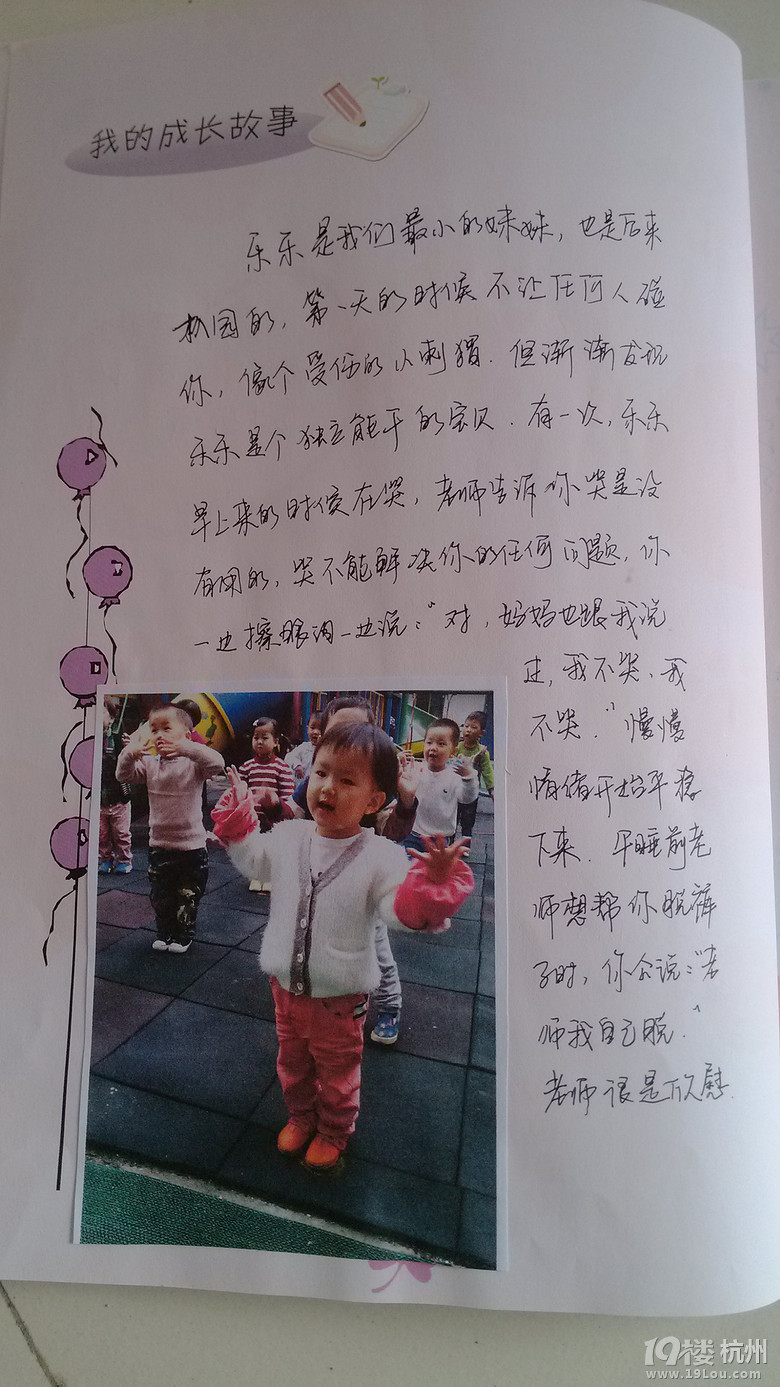 我的成长故事
乐乐是我们最小的妹妹，也是后来
机园的，第一天的时候不让任何人碰
你，像个受伤的小刺猬．但渐渐发现
乐乐是个独立能干的宝贝．有一次，乐乐
早上来的时候在哭，老师告诉你哭是没
有用的，哭不能解决你的任何问题，你
一边擦眼泪一边说：“对，妈妈也跟我说
过，我不哭、我
不哭．”慢慢
情绪开始平稳
下来．午睡前老
师想帮你脱裤
子时，你会说：“老
师我自己脱．”
老师很是欣慰．
19楼杭州
www.19Lou.com